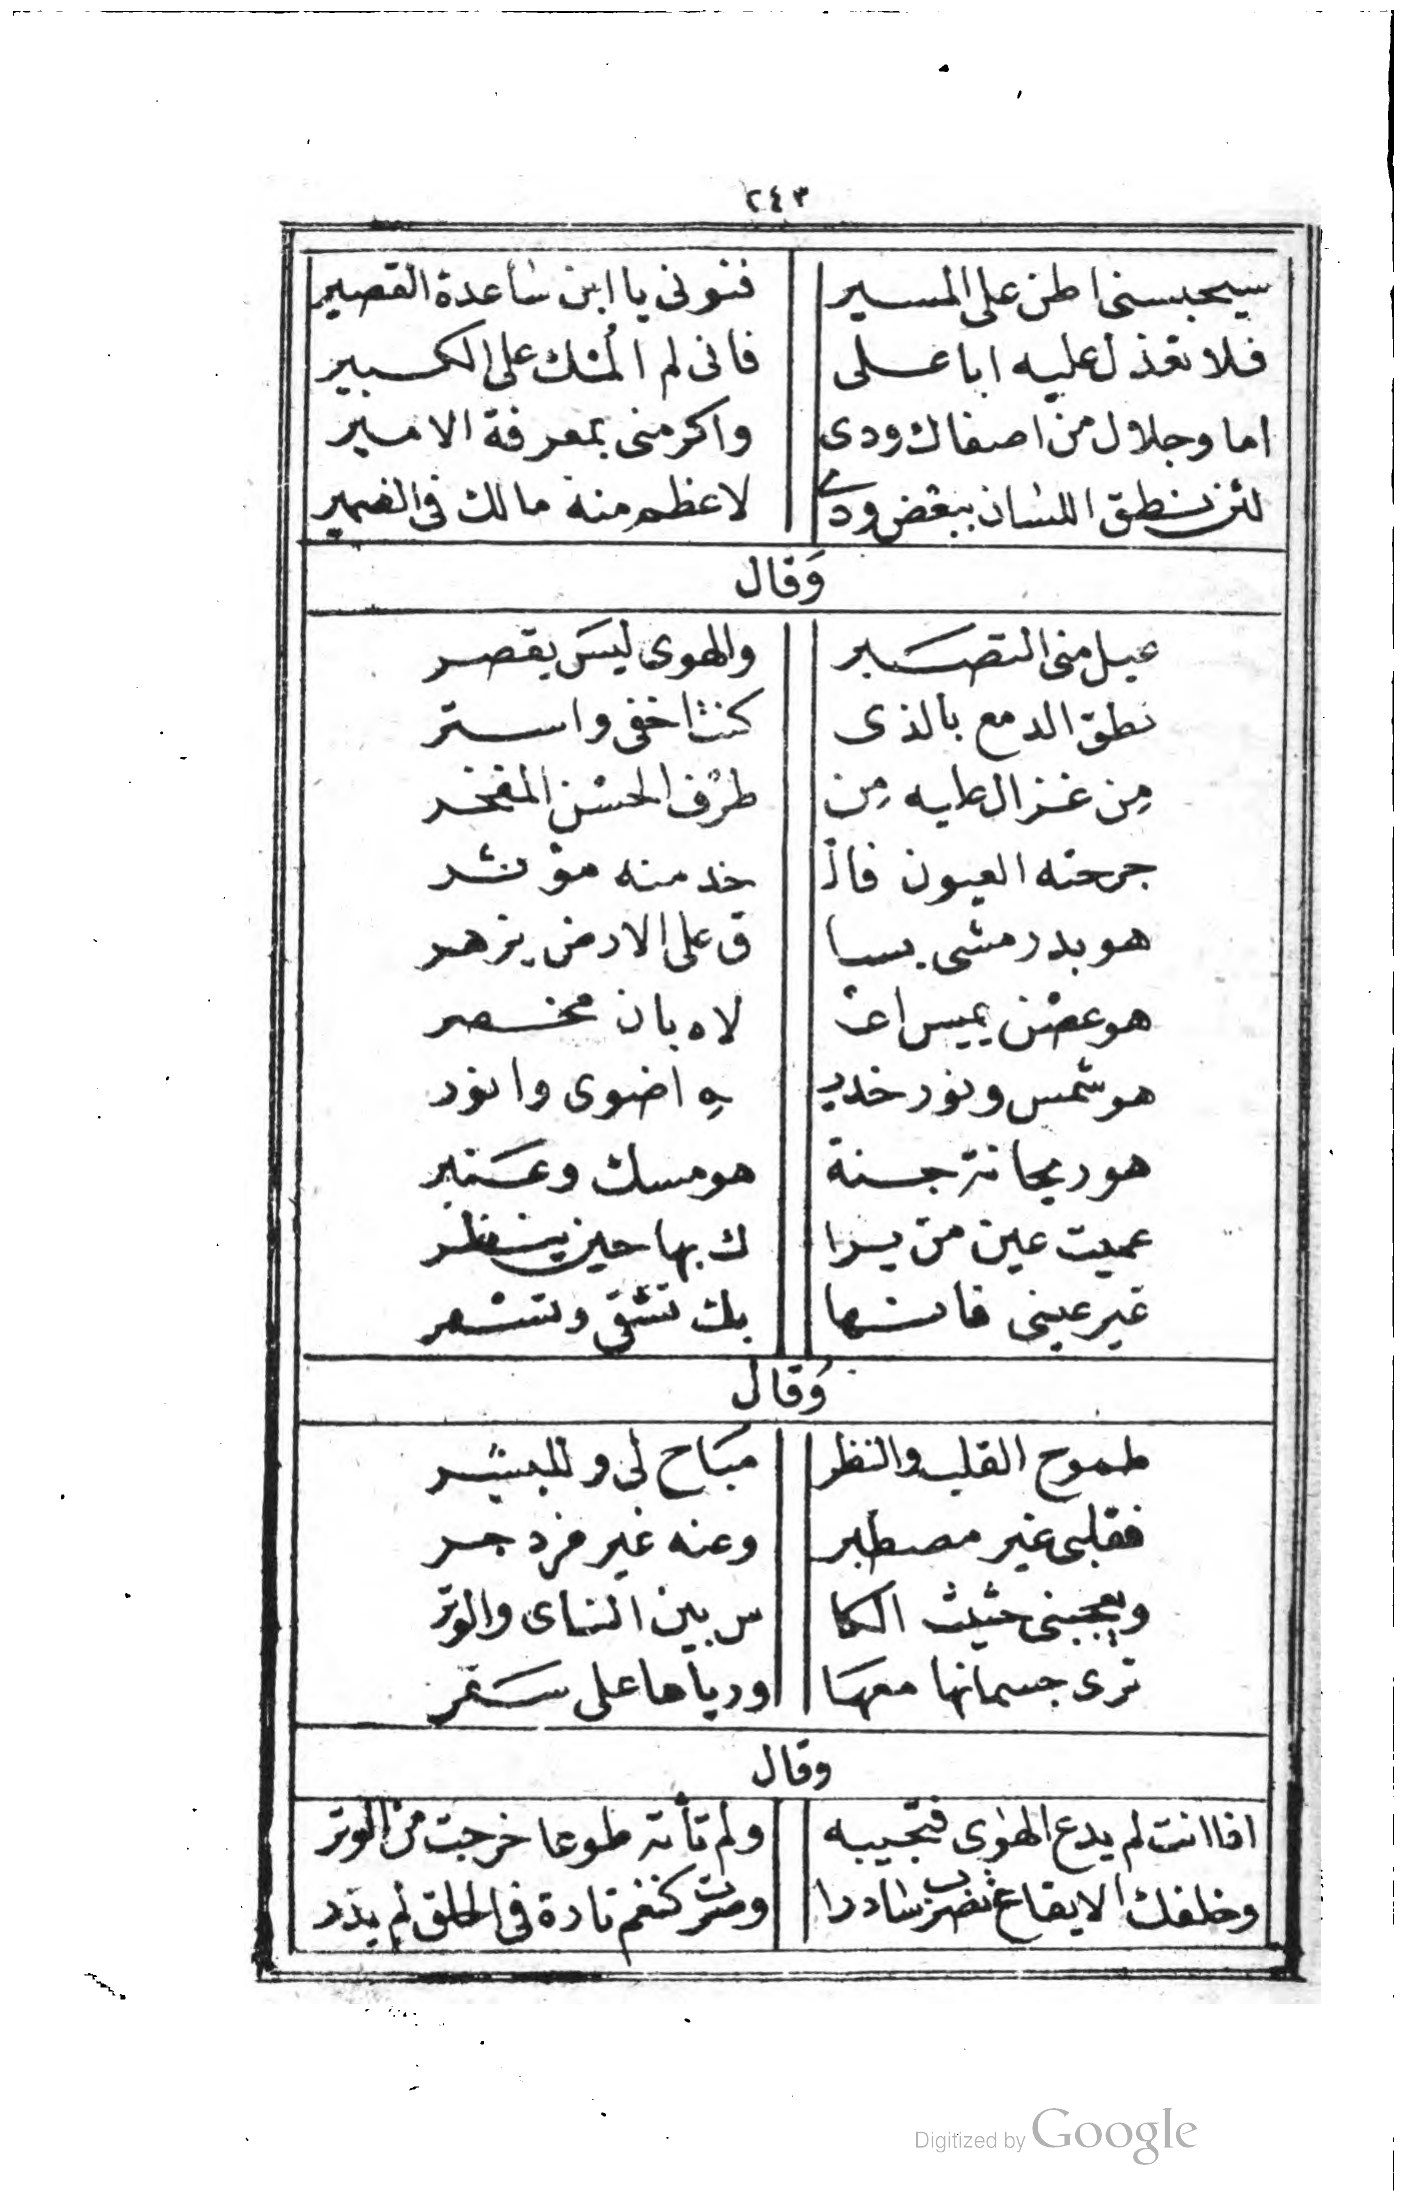 ٢٤٣
سيحبسنى اظن على المسير فنونى يا ابن ساعدة القصير
فلا تعذل عليه ابا على فانى لم المك على الكبير
اما وجلال من اصفاك ودى واكرمنى بمعرفة الامير
لئن نطق اللسان ببعض ودى لاعظم منه مالك فى الضمير
وَقال
عيل منى التصبر والهوى ليس يقصر
نطق الدمع بالذى كنت اخفى واستر
مِن غزال عليه مِن طرف الحسن المفخر
جرحته العيون فالـ خد منه مؤثر
هو بدر مشى بسا ق على الارض يزهر
هو غصن يميس اعـ لاه بان مخصر
هو شمس ونور خديـ ـه اضوى وانور
هو ريحانة جنة هو مسك وعنبر
عميت عين من يرا ك بها حين ينظر
غير عينى فانها بك تشقى وتسهر
وَقال
طموح القلب والنظر مباح لى وللبشر
فقلبى غير مصطبر وعنه غير مزدجر
ويعجبنى حثيث الكا س بين الناى والوتر
ترى جسمانها معها ورياها على سفر
وقال
اذا انت لم يدع الهوى فتجيبه ولم تأته طوعا خرجت من الوتر
وخلفك الايقاع تضرب سادرا وصرت كنغم تارة فى الحلق لم يدر
Digitized by Google